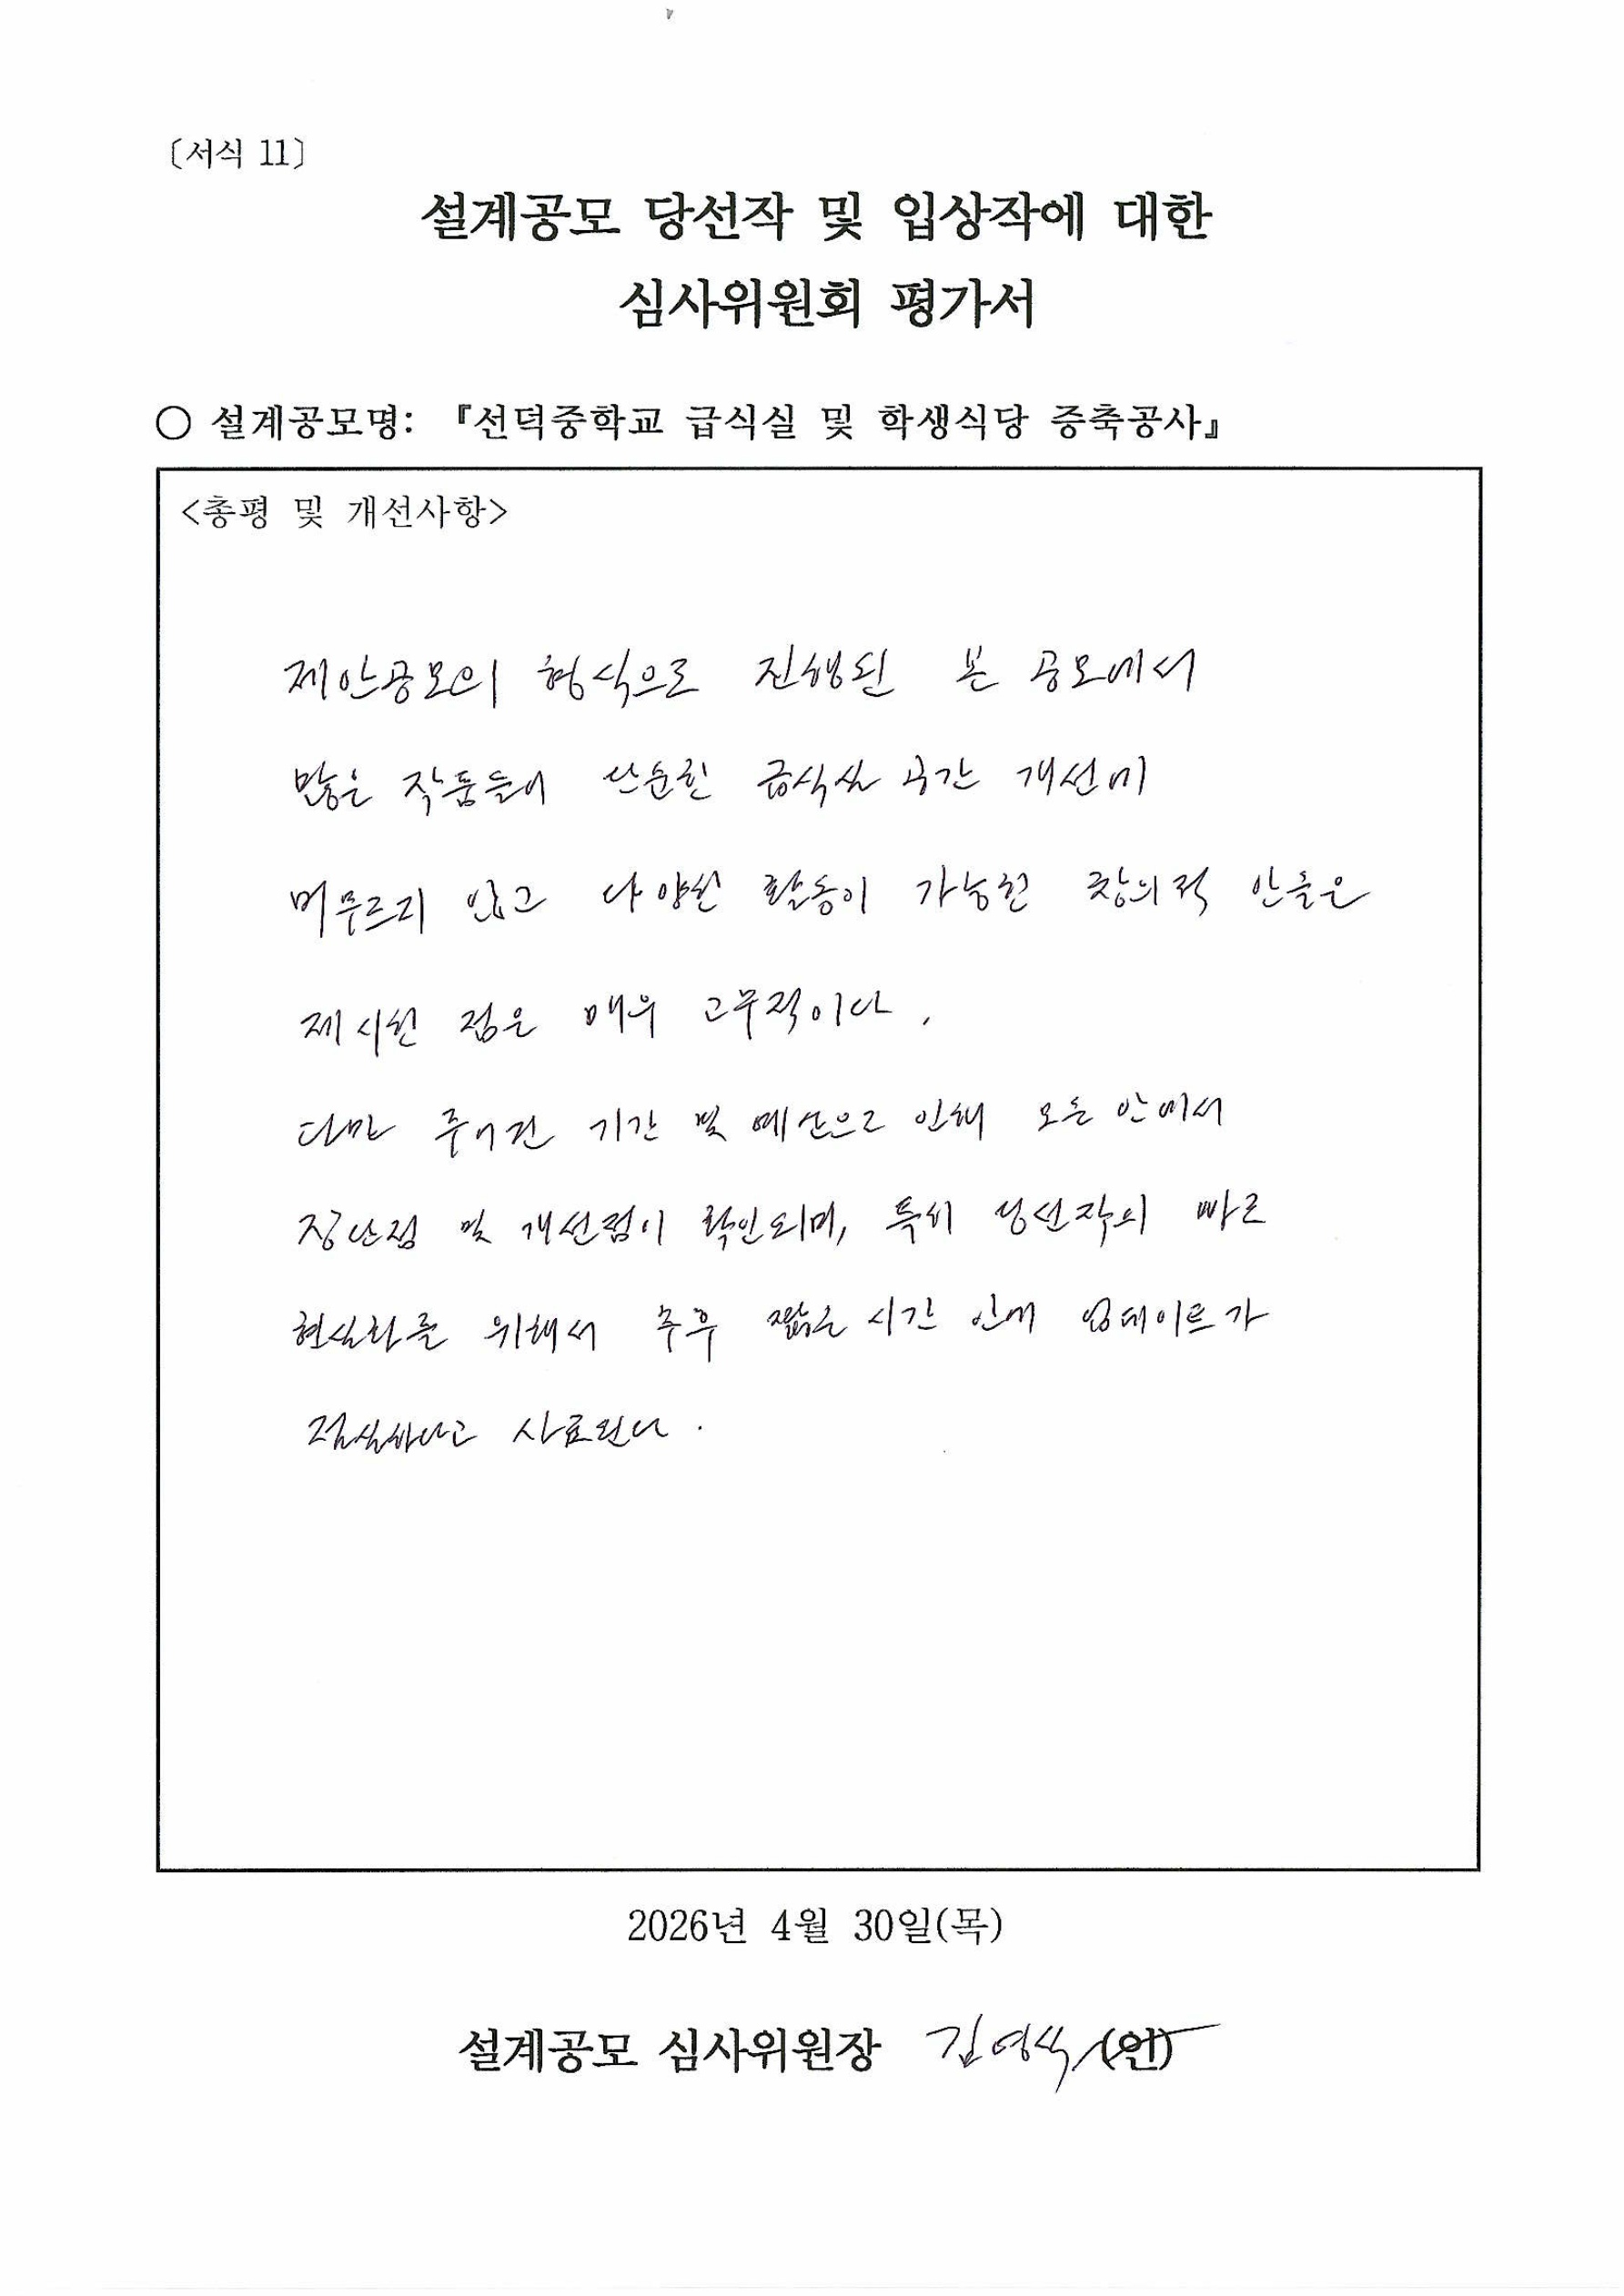 〔서식 11〕
설계공모 당선작 및 입상작에 대한
심사위원회 평가서
○ 설계공모명: 『선덕중학교 급식실 및 학생식당 증축공사』
<총평 및 개선사항>
제안공모의 형식으로 진행된 본 공모에서
많은 작품들이 단순한 급식실 공간 개선에
머무르지 않고 다양한 활동이 가능한 창의적 안들은
제시한 점은 매우 고무적이다.
다만 주어진 기간 및 예산으로 인해 모든 안에서
장단점 및 개선점이 확인되며, 특히 당선작의 빠른
현실화를 위해서 추후 짧은 시간 안에 업데이트가
절실하다고 사료된다.
2026년 4월 30일(목)
설계공모 심사위원장 김영석 (인)